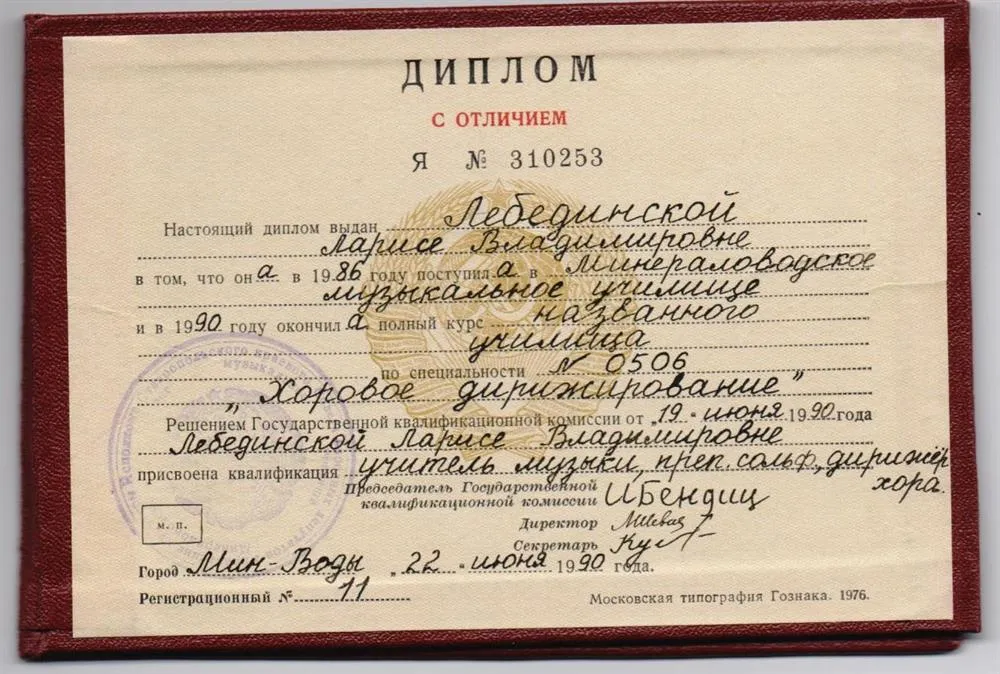 ДИПЛОМ
С ОТЛИЧИЕМ
Я № 310253
Настоящий диплом выдан Лебединской
Ларисе Владимировне
в том, что она в 1986 году поступила в Минераловодское
музыкальное училище
и в 1990 году окончила полный курс названного
училища
по специальности № 0506
"Хоровое дирижирование"
Решением Государственной квалификационной комиссии от "19" июня 1990 года
Лебединской Ларисе Владимировне
присвоена квалификация учитель музыки, преп. сольф., дирижёр
хора.
Председатель Государственной
квалификационной комиссии И Бендиц
Директор
Секретарь
м. п.
Город Мин-Воды "22" июня 1990 года.
Регистрационный № 11
Московская типография Гознака. 1976.